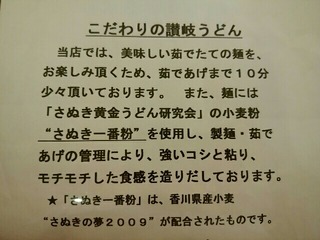 こだわりの讃岐うどん
当店では、美味しい茹でたての麺を、
お楽しみ頂くため、茹であげまで１０分
少々頂いております。　また、麺には
「さぬき黄金うどん研究会」の小麦粉
“さぬき一番粉”を使用し、製麺・茹で
あげの管理により、強いコシと粘り、
モチモチした食感を造りだしております。
★「さぬき一番粉」は、香川県産小麦
“さぬきの夢２００９”が配合されたものです。